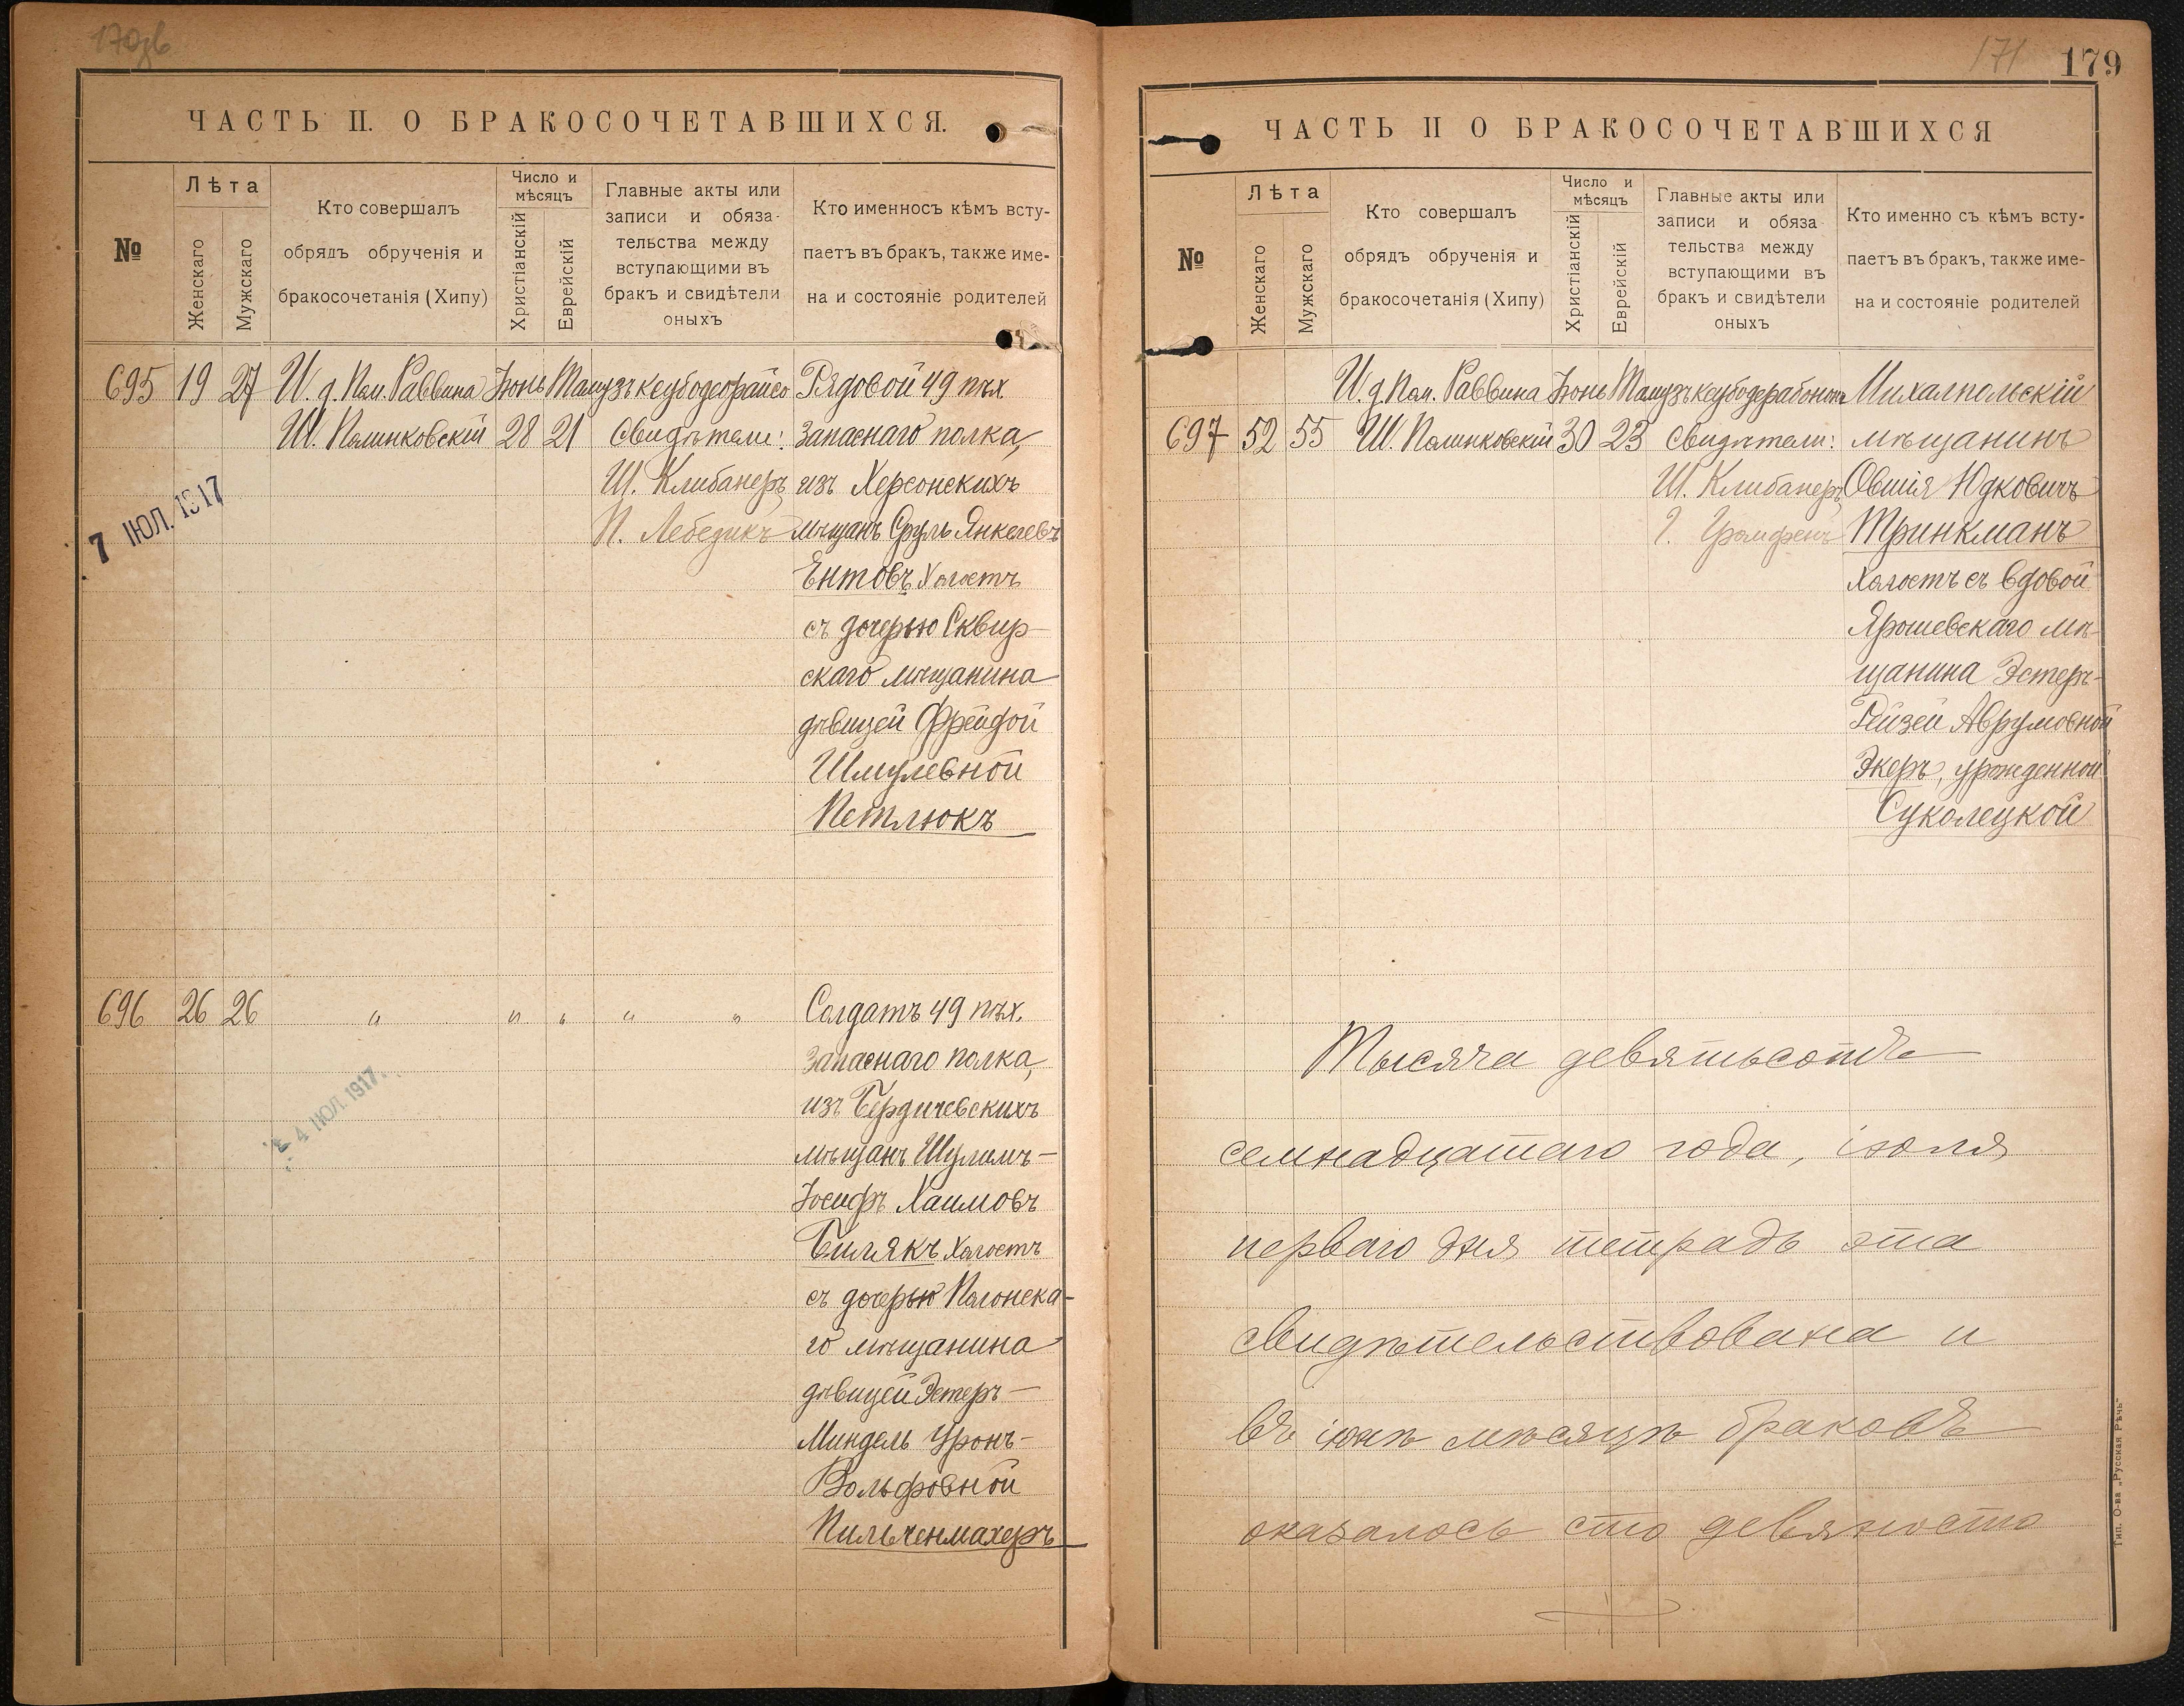 170об
ЧАСТЬ II. О БРАКОСОЧЕТАВШИХСЯ.
№
Лѣта
Женскаго
Мужскаго
Кто совершалъ
обрядъ обрученія и
бракосочетанія (Хипу)
Число и
мѣсяцъ
Христіанскій
Еврейскій
Главные акты или
записи и обяза-
тельства между
вступающими въ
бракъ и свидѣтели
оныхъ
Кто именносъ кѣмъ всту-
паетъ въ бракъ, также име-
на и состояніе родителей
695 19 27 И. д. Пом. Раввина Іюнь Тамузъ Рядовой 49 пѣх.
Ш. Полинковскій 28 21 Свидѣтели: Запаснаго полка,
Ш. Клибанеръ изъ Херсонскихъ
П. Лебедикъ мѣщанъ Сруль Янкелевъ
7 ІЮЛ. 1917
Ентовъ Холостъ
съ дочерью Сквир-
скаго мѣщанина
дѣвицей Фрейдой
Шмулевной
Петлюкъ
696 26 26 " " " " " Солдатъ 49 пѣх.
Запаснаго полка,
изъ Бердичевскихъ
мѣщанъ Шулимъ-
Іосифъ Хаимовъ
Билякъ Холостъ
съ дочерью Полонска-
го мѣщанина
дѣвицей Эстеръ-
Миндель
Вольфовной
Пильченмахеръ
4 ІЮЛ. 1917.
171
179
ЧАСТЬ II О БРАКОСОЧЕТАВШИХСЯ
№
Лѣта
Женскаго
Мужскаго
Кто совершалъ
обрядъ обрученія и
бракосочетанія (Хипу)
Число и
мѣсяцъ
Христіанскій
Еврейскій
Главные акты или
записи и обяза
тельства между
вступающими въ
бракъ и свидѣтели
оныхъ
Кто именно съ кѣмъ всту-
паетъ въ бракъ, также име-
на и состояніе родителей
И. д. Пом. Раввина Іюнь Тамузъ Михалпольскій
697 52 55 Ш. Полинковскій 30 23 Свидѣтели: мѣщанинъ
Ш. Клибанеръ Овшія Юдковичъ
Тринкманъ
Холостъ съ вдовой
Ярошевскаго мѣ-
щанина Эстеръ-
Рейзей Аврумовной
Экеръ, урожденной
Суколецкой
Тысяча девятьсотъ
семнадцатаго года, іюля
перваго дня тетрадь эта
свидѣтельствована и
въ іюнѣ мѣсяцѣ браковъ
оказалось сто девяносто
Тип. О-ва „Русская Рѣчь"